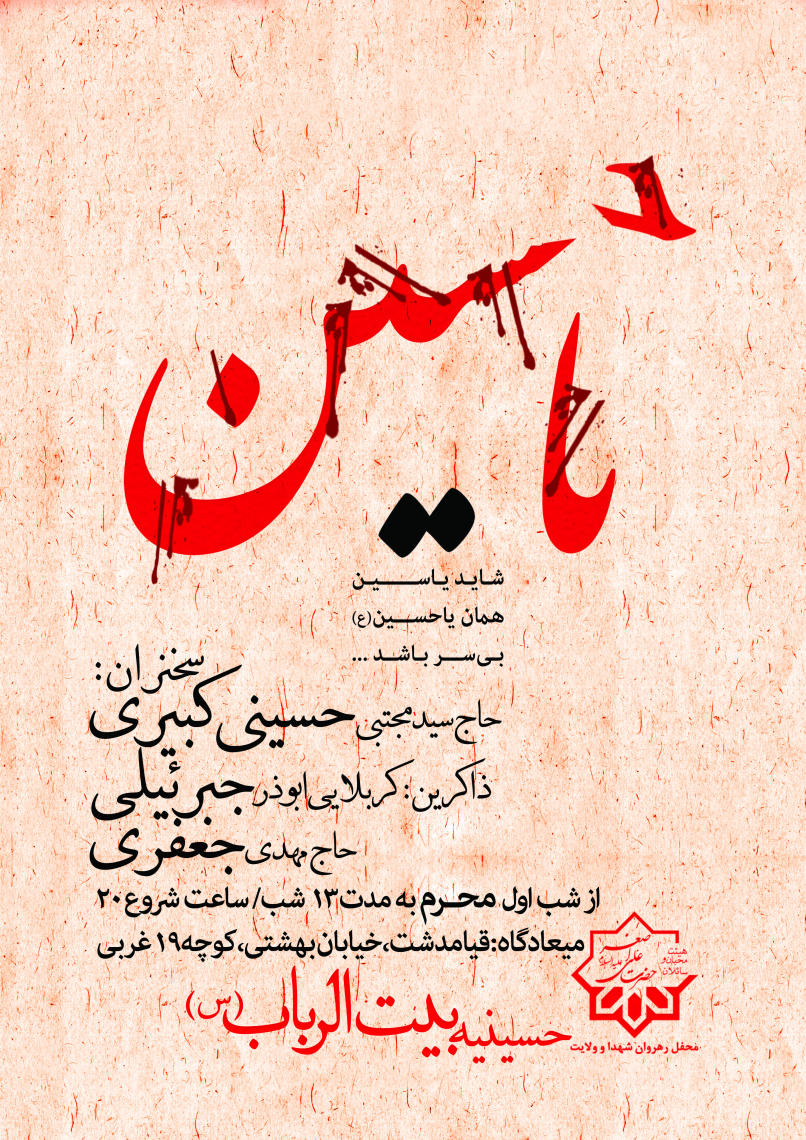 یاحسین
شاید یاسین
همان یاحسین(ع)
بی‌سر باشد ...
سخنران:
حاج سید مجتبی حسینی کبیری
ذاکرین: کربلایی ابوذر جبرئیلی
حاج مهدی جعفری
از شب اول محرم به مدت ۱۳ شب/ ساعت شروع ۲۰
میعادگاه: قیامدشت، خیابان بهشتی، کوچه ۱۹ غربی
حسینیه بیت الرباب (س)
هیئت
محبان و
سائلان
حضرت علی اصغر علیه السلام
محفل رهروان شهدا و ولایت